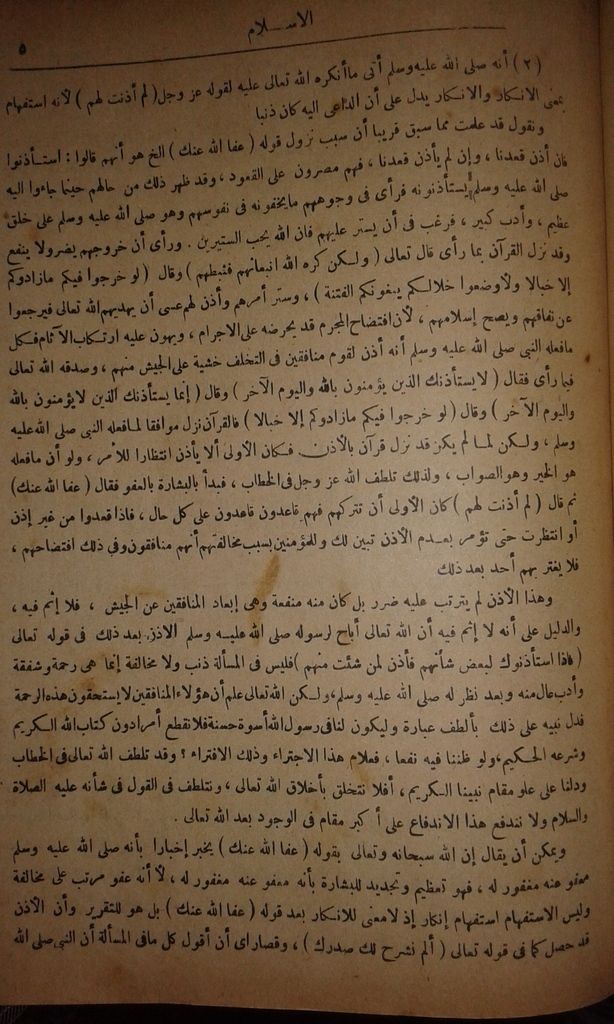 الاسلام
٥
(٢) أنه صلى الله عليه وسلم أتى ما أنكره الله تعالى عليه لقوله عز وجل (لم أذنت لهم) لأنه استفهام
بمعنى الانكار والانكار يدل على أن الداعى اليه كان ذنبا
ونقول قد علمت مما سبق قريبا أن سبب نزول قوله (عفا الله عنك) الخ هو أنهم قالوا: استأذنوا
فان أذن قعدنا، وإن لم يأذن قعدنا، فهم مصرون على القعود، وقد ظهر ذلك من حالهم حينما جاءوا اليه
صلى الله عليه وسلم يستأذنونه فرأى فى وجوههم ما يخفونه فى نفوسهم وهو صلى الله عليه وسلم على خلق
عظيم، وأدب كبير، فرغب فى أن يستر عليهم فان الله يحب الستيرين. ورأى أن خروجهم يضر ولا ينفع
وقد نزل القرآن بما رأى قال تعالى (ولكن كره الله انبعاثهم فثبطهم) وقال (لو خرجوا فيكم مازادوكم
إلا خبالا ولأوضعوا خلالكم يبغونكم الفتنة)، وستر أمرهم وأذن لهم عسى أن يهديهم الله تعالى فيرجعوا
عن نفاقهم ويصح إسلامهم، لأن افتضاح المجرم قد يحرضه على الاجرام، ويهون عليه ارتكاب الآثام فكل
مافعله النبي صلى الله عليه وسلم أنه أذن لقوم منافقين فى التخلف خشية على الجيش منهم، وصدقه الله تعالى
فيما رأى فقال (لا يستأذنك الذين يؤمنون بالله واليوم الآخر) وقال (إنما يستأذنك الذين لا يؤمنون بالله
واليوم الآخر) وقال (لو خرجوا فيكم مازادوكم إلا خبالا) فالقرآن نزل موافقا لمافعله النبي صلى الله عليه
وسلم، ولكن لما لم يكن قد نزل قرآن بالأذن فكان الأولى ألا يأذن انتظارا للأمر، ولو أن مافعله
هو الخير وهو الصواب، ولذلك تلطف الله عز وجل فى الخطاب، فبدأ بالبشارة بالعفو فقال (عفا الله عنك)
ثم قال (لم أذنت لهم) كان الأولى أن تتركهم فهم قاعدون قاعدون على كل حال، فاذا قعدوا من غير إذن
أو انتظرت حتى تؤمر بعدم الأذن تبين لك وللمؤمنين بسبب مخالفتهم أنهم منافقون وفى ذلك افتضاحهم،
فلا يغتر بهم أحد بعد ذلك
وهذا الأذن لم يترتب عليه ضرر بل كان منه منفعة وهى إبعاد المنافقين عن الجيش، فلا إثم فيه،
والدليل على أنه لا إثم فيه أن الله تعالى أباح لرسوله صلى الله عليه وسلم الاذن بعد ذلك فى قوله تعالى
(فاذا استأذنوك لبعض شأنهم فأذن لمن شئت منهم) فليس فى المسألة ذنب ولا مخالفة إنما هى رحمة وشفقة
وأدب عال منه وبعد نظر له صلى الله عليه وسلم، ولكن الله تعالى علم أن هؤلاء المنافقين لا يستحقون هذه الرحمة
فدل نبيه على ذلك بألطف عبارة وليكون لنا فى رسول الله أسوة حسنة فلا نقطع أمرا دون كتاب الله الكريم
وشرعه الحكيم، ولو ظننا فيه نفعا، فعلام هذا الاجتراء وذلك الافتراء؟ وقد تلطف الله تعالى فى الخطاب
ودلنا على علو مقام نبينا الكريم، أفلا نتخلق بأخلاق الله تعالى، ونتلطف فى القول فى شأنه عليه الصلاة
والسلام ولا نندفع هذا الاندفاع على أكبر مقام فى الوجود بعد الله تعالى.
ويمكن أن يقال إن الله سبحانه وتعالى بقوله (عفا الله عنك) يخبر إخبارا بأنه صلى الله عليه وسلم
معفو عنه مغفور له، فهو تعظيم وتجديد للبشارة بأنه معفو عنه مغفور له، لا أنه عفو مرتب على مخالفة
وليس الاستفهام استفهام إنكار إذ لا معنى للانكار بعد قوله (عفا الله عنك) بل هو للتقرير وأن الأذن
قد حصل كما فى قوله تعالى (ألم نشرح لك صدرك)، وقصاراى أن أقول كل مافى المسألة أن النبى صلى الله